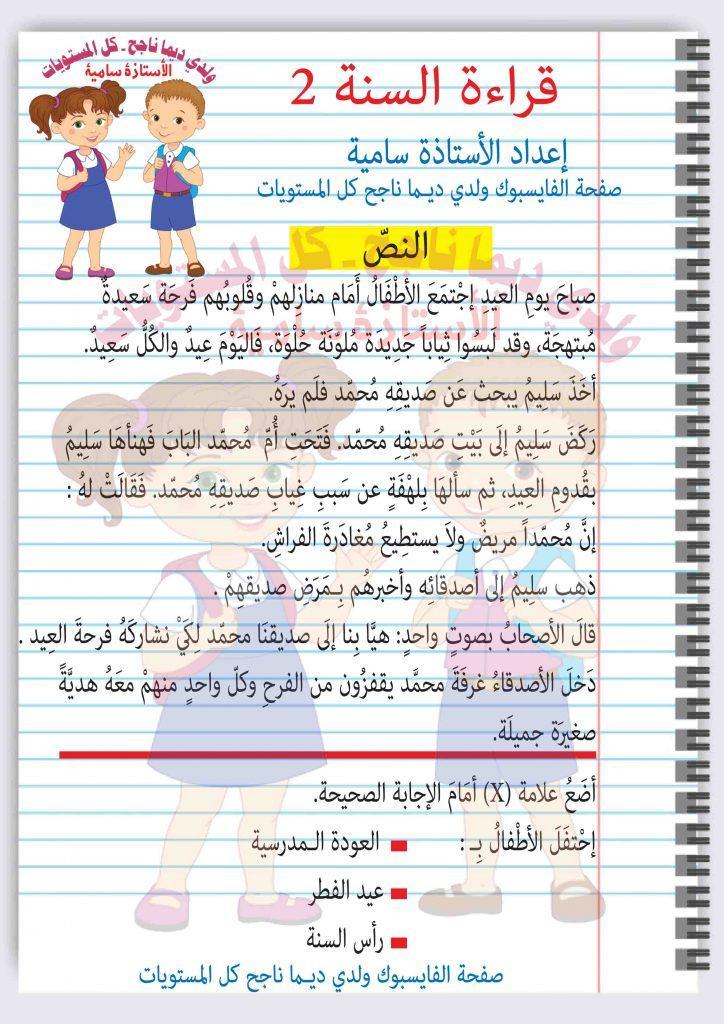 ولدي ديما ناجح - كل المستويات
الأستاذة سامية
قراءة السنة 2
إعداد الأستاذة سامية
صفحة الفايسبوك ولدي ديـما ناجح كل المستويات
النصّ
صباحَ يومِ العيدِ إجْتمَعَ الأطْفَالُ أَمَام منازلهمْ وقُلوبُهم فَرحَة سَعيدةٌ
مُبتهجَة، وقد لَبسُوا ثِياباً جَديدة مُلوّنَة حُلْوَة، فَاليَوْمَ عِيدٌ والكُلُّ سَعِيدٌ.
أخَذَ سَلِيمُ يبحث عَن صَديقِهِ مُحمّد فلَم يرَهُ.
رَكَضَ سَلِيمُ إلَى بَيْتِ صَديقِهِ مُحمّد. فَتَحَت أُمّ مُحمّد البَابَ فَهنأهَا سَلِيمُ
بقُدومِ العِيدِ، ثم سألهَا بِلهْفَةٍ عن سَببِ غِيابِ صَديقِهِ مُحمّد. فَقَالَتْ لهُ :
إنَّ مُحمّداً مريضٌ ولاَ يستطِيعُ مُغادَرةَ الفراشِ.
ذهب سلِيمُ إلى أصدقائِه وأخبرهُم بِـمَرَضِ صديقهِمْ .
قالَ الأصحابُ بصوتٍ واحدٍ: هيَّا بِنا إلَى صديقنَا محمّد لِكَيْ نشاركَهُ فرحةَ العِيد .
دَخلَ الأصدقاءُ غرفَةَ محمَّد يقفزُون من الفرحِ وكلّ واحدٍ منهمْ معَهُ هديَّةً
صغيرَة جميلَة.
أضَعُ علامة (X) أمَامَ الإجابة الصحيحة.
إحْتفَلَ الأطْفالُ بِـ : العودة الـمدرسية
عيد الفطر
رأس السنة
صفحة الفايسبوك ولدي ديـما ناجح كل المستويات